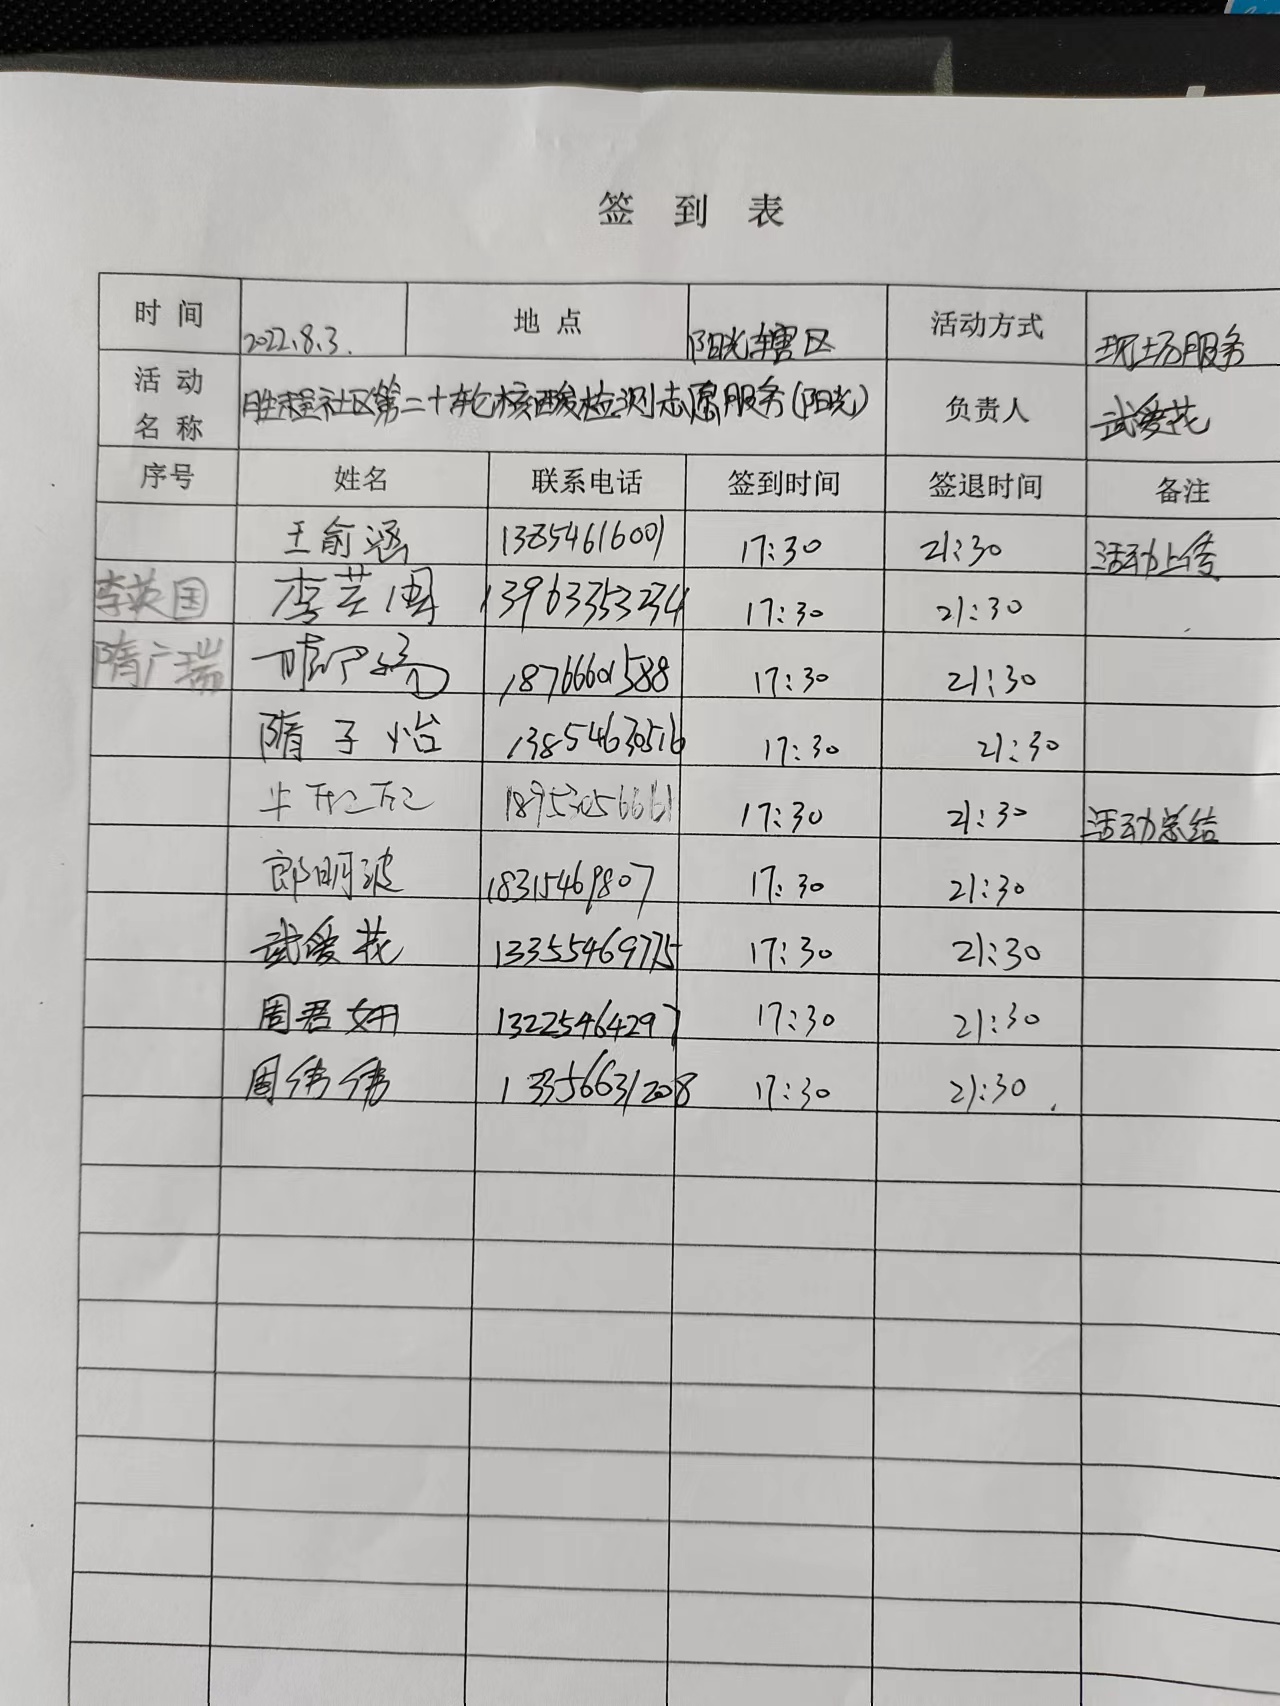 签到表
时间 2022.8.3. 地点 阳光辖区 活动方式 现场服务
活动名称 胜社区第二十轮核酸检测志愿服务(阳光) 负责人 武爱花
序号 姓名 联系电话 签到时间 签退时间 备注
王俞涵 13854616001 17:30 21:30 活动上传
李英国 李英国 13963353234 17:30 21:30
隋广瑞 隋广瑞 18766601588 17:30 21:30
隋子怡 13854630516 17:30 21:30
17:30 21:30 活动总结
郎明波 18315469807 17:30 21:30
武爱花 13355469775 17:30 21:30
周君妍 13225464297 17:30 21:30
周伟伟 13356631208 17:30 21:30